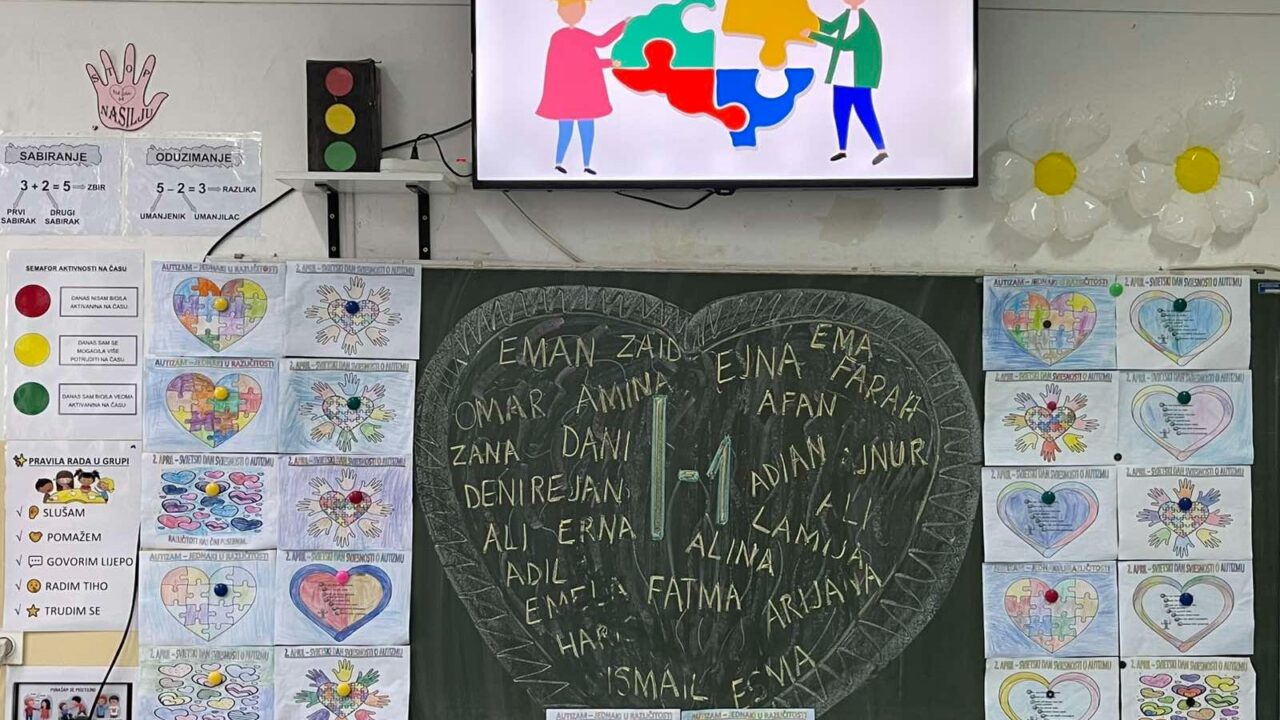 STOP
NASILJU
SABIRANJE
3 + 2 = 5 ⇒ ZBIR
PRVI SABIRAK
DRUGI SABIRAK
ODUZIMANJE
5 – 2 = 3 ⇒ RAZLIKA
UMANJENIK
UMANJILAC
SEMAFOR AKTIVNOSTI NA ČASU
DANAS NISAM BIO/LA
AKTIVAN/NA NA ČASU
DANAS SAM SE
MOGAO/LA VIŠE
POTRUDITI NA ČASU
DANAS SAM BIO/LA VEOMA
AKTIVAN/NA NA ČASU
PRAVILA RADA U GRUPI
√ SLUŠAM
√ POMAŽEM
√ GOVORIM LIJEPO
√ RADIM TIHO
√ TRUDIM SE
AUTIZAM – JEDNAKI U RAZLIČITOSTI
2. APRIL – SVJETSKI DAN SVJESNOSTI O AUTIZMU
AUTIZAM – JEDNAKI U RAZLIČITOSTI
2. APRIL – SVJETSKI DAN SVJESNOSTI O AUTIZMU
2. APRIL – SVJETSKI DAN SVJESNOSTI O AUTIZMU
2. APRIL – SVJETSKI DAN SVJESNOSTI O AUTIZMU
AUTIZAM – JEDNAKI U RAZLIČITOSTI
2. APRIL – SVJETSKI DAN SVJESNOSTI O AUTIZMU
2. APRIL – SVJETSKI DAN SVJESNOSTI O AUTIZMU
2. APRIL – SVJETSKI DAN SVJESNOSTI O AUTIZMU
EMAN ZAID
OMAR AMINA
ZANA DANI
DENI REJAN
ALI ERNA
ADIL
FATMA
ISMAIL
I-1
EMA
EJNA FARAH
AFAN
ADIAN
ALI
LAMIJA
ALINA
ARIJANA
AUTIZAM – JEDNAKI U RAZLIČITOSTI
2. APRIL – SVJETSKI DAN SVJESNOSTI O AUTIZMU
2. APRIL – SVJETSKI DAN SVJESNOSTI O AUTIZMU
2. APRIL – SVJETSKI DAN SVJESNOSTI O AUTIZMU
2. APRIL – SVJETSKI DAN SVJESNOSTI O AUTIZMU
2. APRIL – SVJETSKI DAN SVJESNOSTI O AUTIZMU
AUTIZAM – JEDNAKI U RAZLIČITOSTI
2. APRIL – SVJETSKI DAN SVJESNOSTI O AUTIZMU
2. APRIL – SVJETSKI DAN SVJESNOSTI O AUTIZMU
2. APRIL – SVJETSKI DAN SVJESNOSTI O AUTIZMU
AUTIZAM – JEDNAKI U RAZLIČITOSTI
AUTIZAM – JEDNAKI U RAZLIČITOSTI